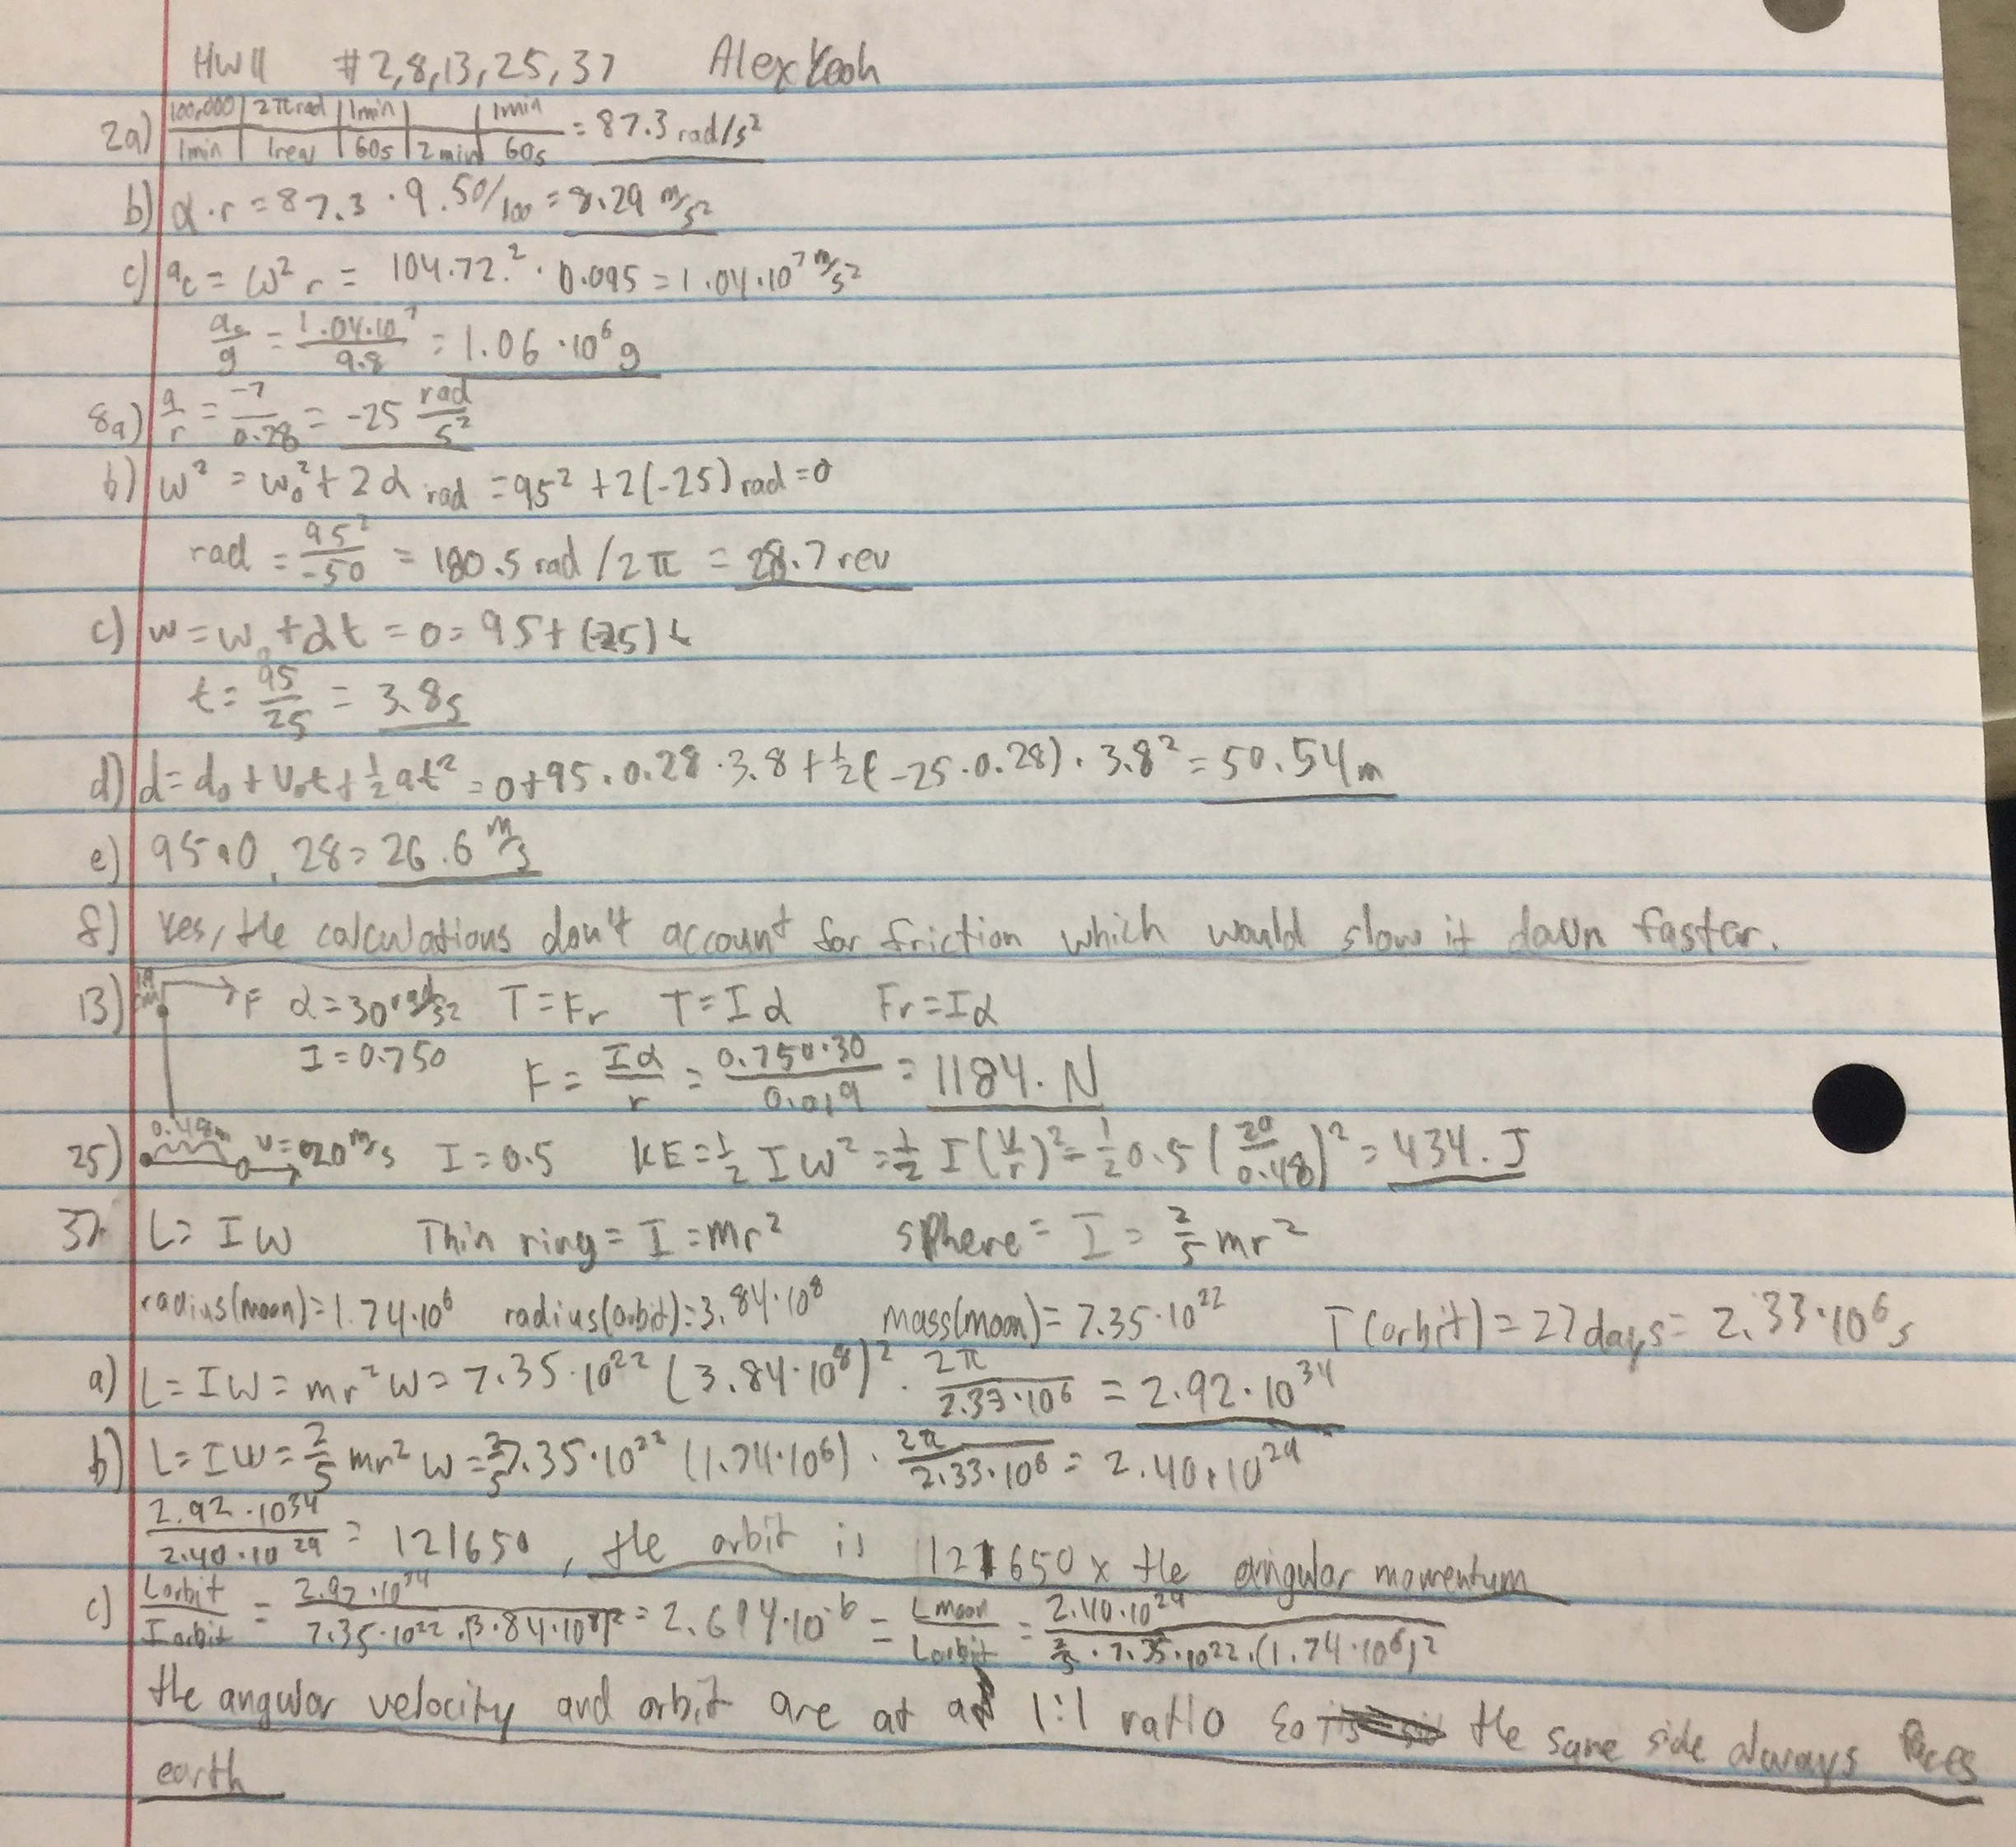 HW11 #2,8,13,25,37 Alex
2a) 100,000/1min | 2π rad/1rev | 1min/60s | /2min | 1min/60s = 87.3 rad/s²
b) α·r = 87.3 · 9.50/100 = 8.29 m/s²
c) ac = ω² r = 104.72.² · 0.095 = 1.04·10⁷ m/s²
ac/g = 1.04·10⁷/9.8 = 1.06 ·10⁶ g
8a) a/r = -7/0.28 = -25 rad/s²
b) ω² = ω₀² + 2α rad = 95² + 2(-25) rad = 0
rad = 95²/-50 = 180.5 rad /2π = 28.7 rev
c) ω = ω₀ + αt = 0 = 95 + (-25) t
t = 95/25 = 3.8s
d) d = d₀ + v₀t + ½at² = 0+95·0.28·3.8 + ½(-25·0.28)·3.8² = 50.54m
e) 95·0.28 = 26.6 m/s
f) Yes, the calculations don't account for friction which would slow it down faster.
13) F α = 30 rad/s² T = Fr T = Iα Fr = Iα
I = 0.750 F = Iα/r = 0.750·30/0.019 = 1184. N
25) 0.48m v = 20 m/s I = 0.5 KE = ½ I ω² = ½ I (v/r)² = ½ 0.5 (20/0.48)² = 434. J
37. L = Iω Thin ring = I = mr² sphere = I = 2/5 mr²
radius(moon) = 1.74·10⁶ radius(orbit) = 3.84·10⁸ mass(moon) = 7.35·10²² T(orbit) = 27 days = 2.33·10⁶ s
a) L = Iω = mr²ω = 7.35·10²² (3.84·10⁸)² · 2π/2.33·10⁶ = 2.92·10³⁴
b) L = Iω = 2/5 mr² ω = 2/5 7.35·10²² (1.74·10⁶) · 2π/2.33·10⁶ = 2.40·10²⁹
2.92·10³⁴/2.40·10²⁹ = 121650, the orbit is 121650x the angular momentum
c) Lorbit/Iorbit = 2.92·10³⁴/7.35·10²²·(3.84·10⁸)² = 2.694·10⁻⁶ = Lmoon/Lorbit = 2.40·10²⁹/⅖·7.35·10²²·(1.74·10⁶)²
the angular velocity and orbit are at a 1:1 ratio so the same side always faces
earth